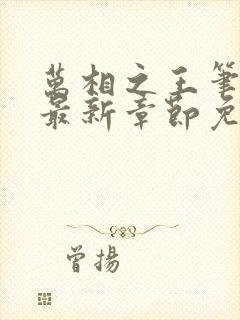 萬相之王筆
最新章節免
曾揚